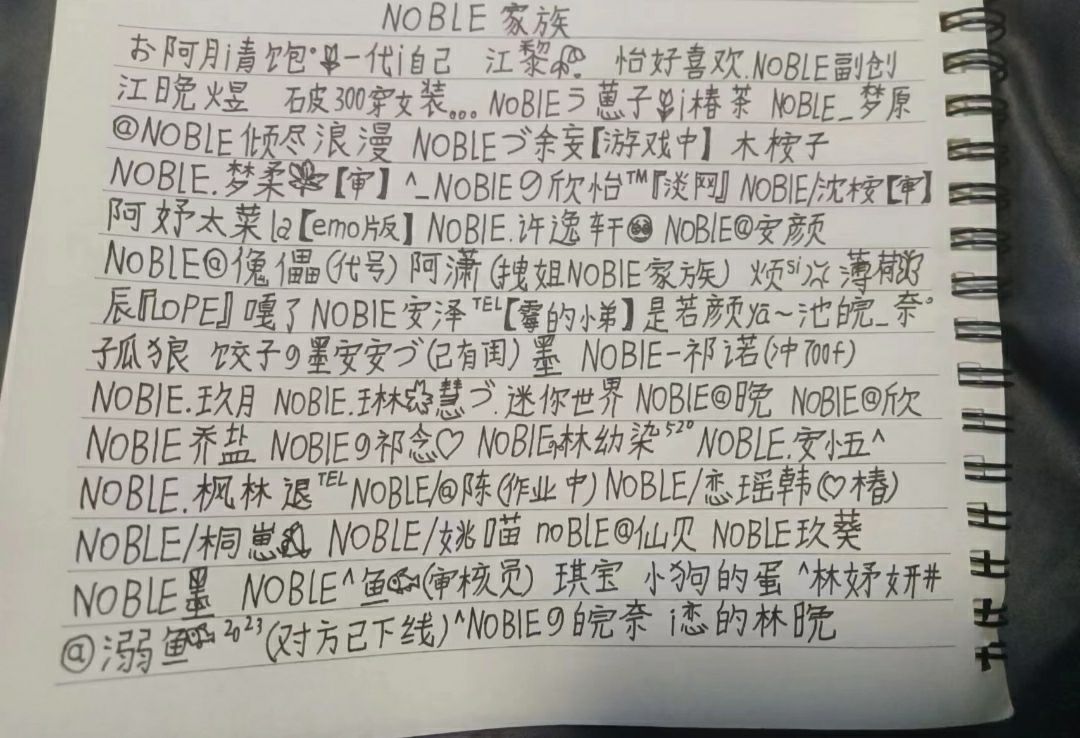 NOBLE 家族
お阿月i青饱°一代i自己 江黎 怡好喜欢.NOBLE副创
江晚煜 石皮300穿女装... NOBIEう蒽子i椿茶 NOBLE_梦原
@NOBLE倾尽浪漫 NOBLEづ余妄【游戏中】 木桉子
NOBLE.梦柔【审】 ^_NOBIEの欣怡™『淡网』 NOBLE/沈桉【审】
阿妤太菜la【emo版】 NOBIE.许逸轩 NOBLE@安颜
NOBLE@傀儡(代号) 阿潇(拽姐NOBIE家族) 烦si 薄荷
辰『LOPE』嘎了 NOBIE安泽TEL【霉的小弟】是若颜ya~池皖_奈°
子瓜狼 饺子の墨安安づ(已有闺) 墨 NOBIE-祁诺(冲700f)
NOBIE.玖月 NOBIE.琳慧づ.迷你世界 NOBIE@晚 NOBIE@欣
NOBIE乔盐 NOBIEの祁念♡ NOBIE林幼染520 NOBLE.安小五^
NOBLE.枫林 退TEL NOBLE/@陈(作业中) NOBLE/恋瑶韩(♡椿)
NOBLE/桐崽 NOBLE/姚喵 noBLE@仙贝 NOBLE玖葵
NOBLE墨 NOBLE^鱼(审核员) 琪宝 小狗的蛋 ^林妤妍#
@溺鱼2023(对方已下线)^NOBIEの皖奈 i恋的林晚